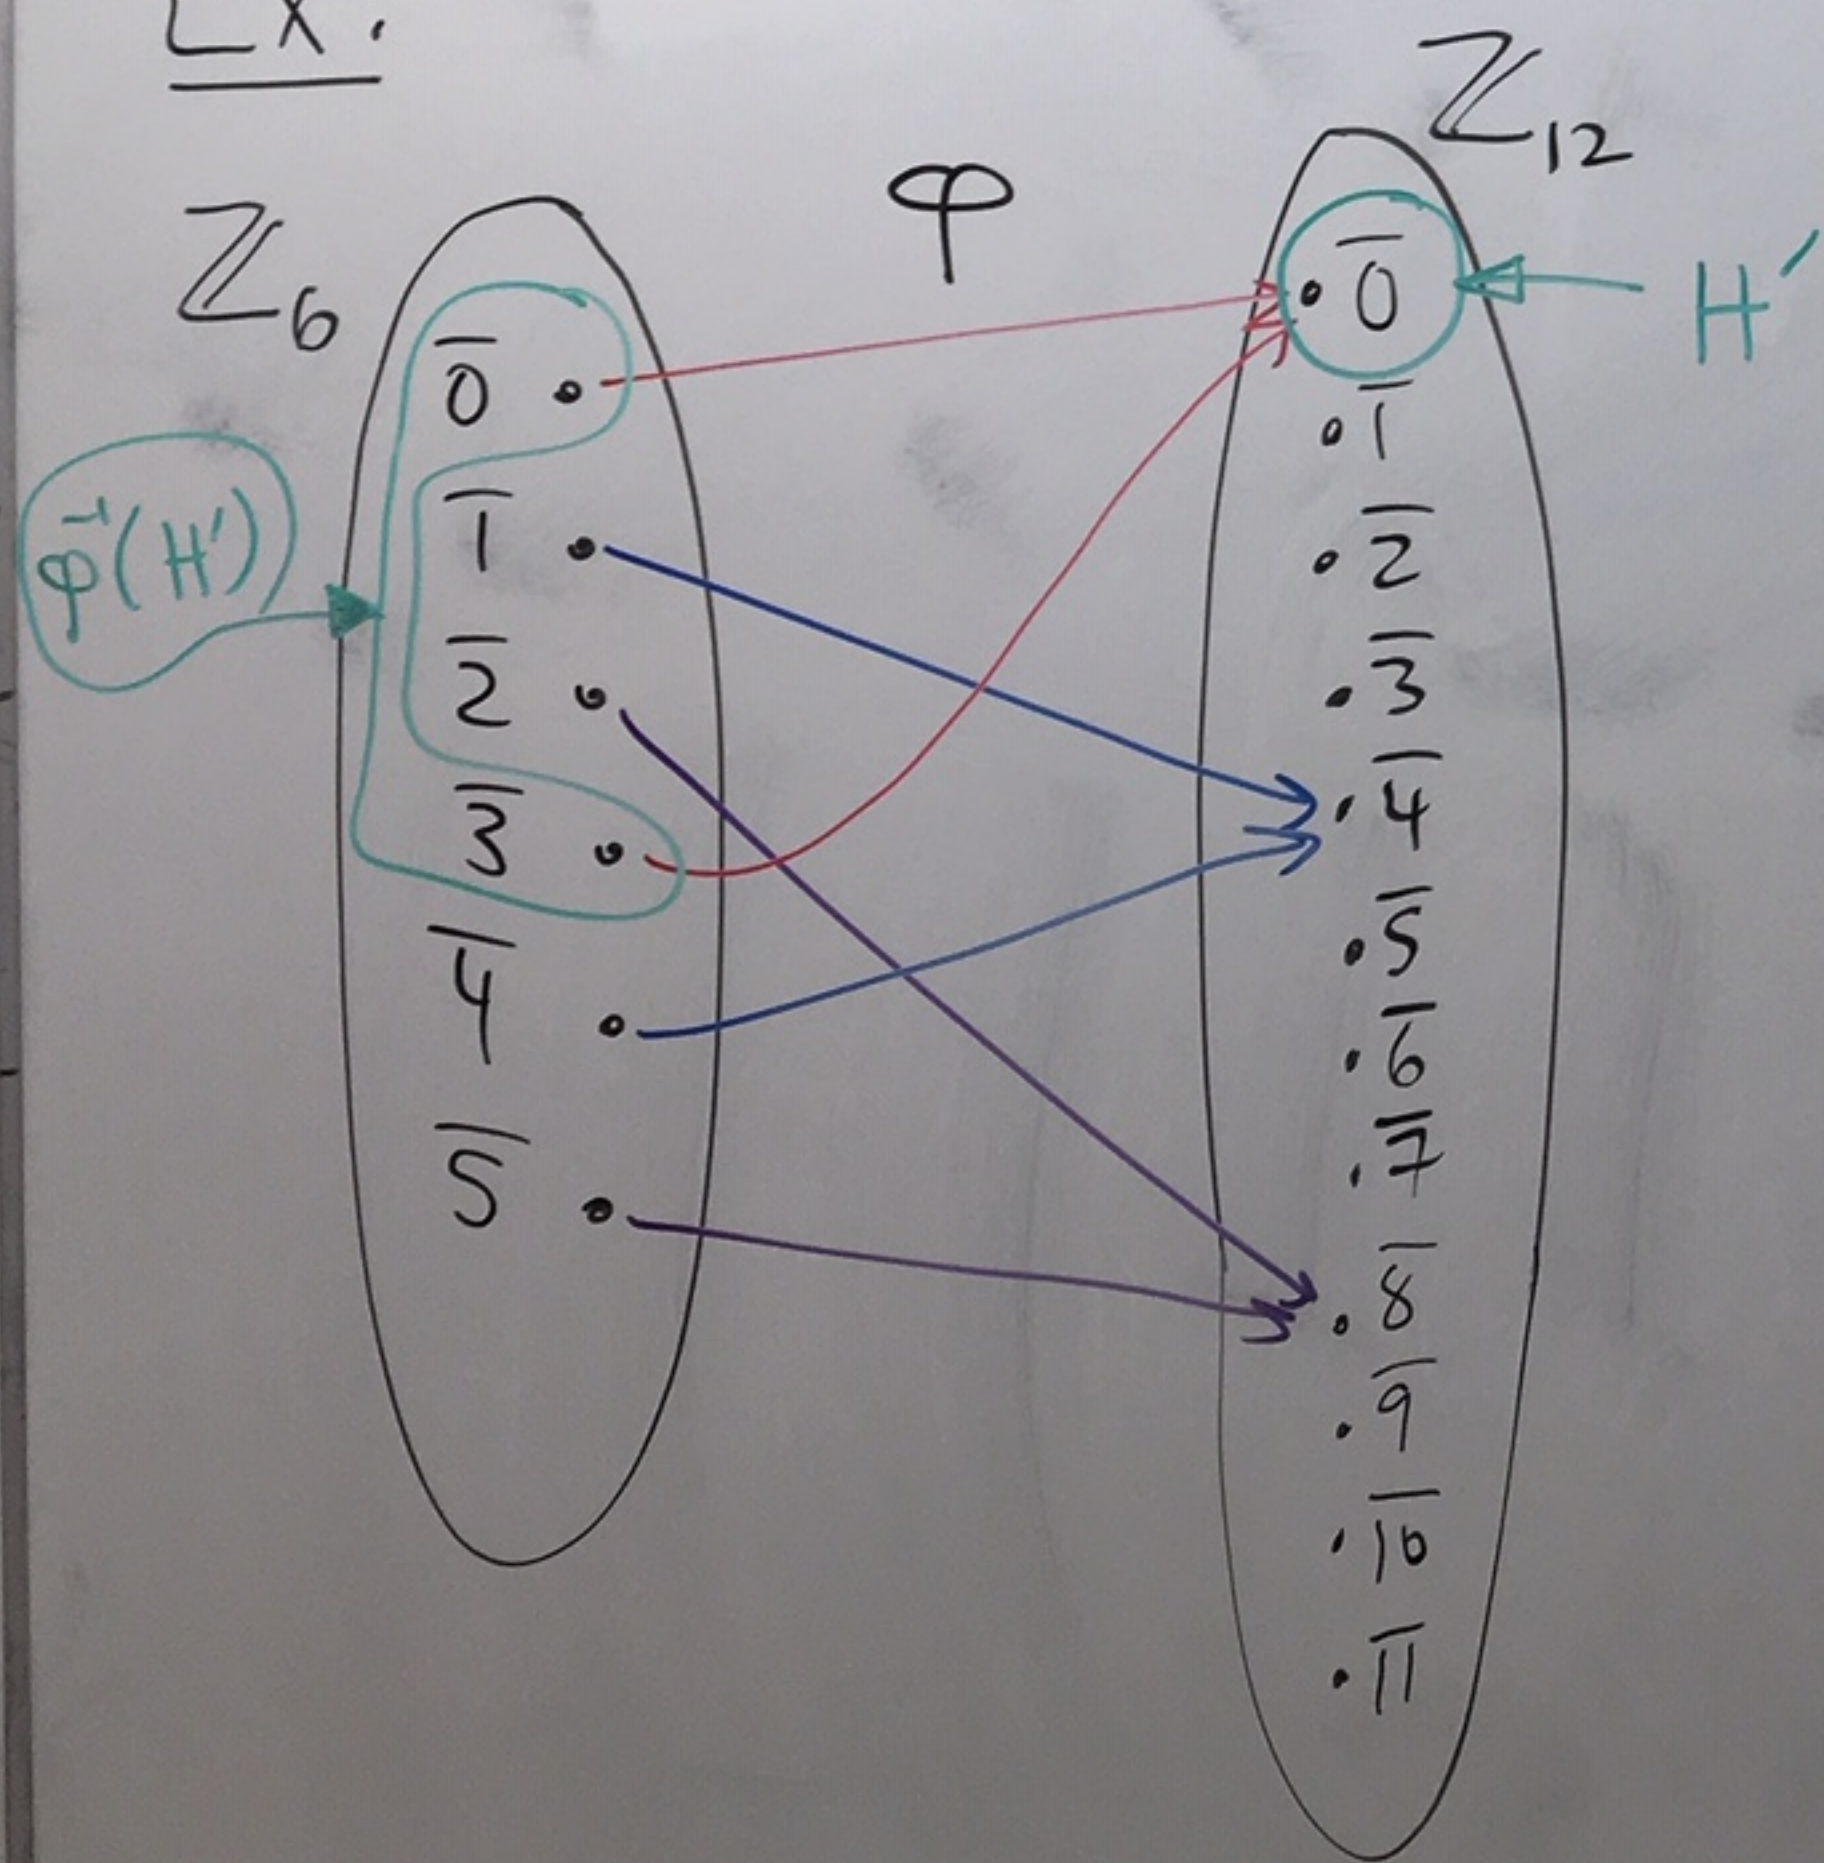 Ex.
ℤ₆
φ
ℤ₁₂
φ⁻¹(H′)
H′
0̅
1̅
2̅
3̅
4̅
5̅
0̅
1̅
2̅
3̅
4̅
5̅
6̅
7̅
8̅
9̅
1̅0̅
1̅1̅